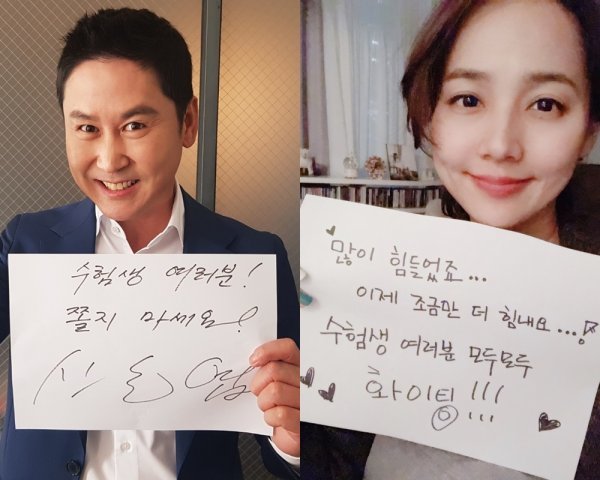 수험생 여러분!
쫄지 마세요!
신동엽
많이 힘들었죠...
이제 조금만 더 힘내요...!
수험생 여러분 모두모두
화이팅!!!